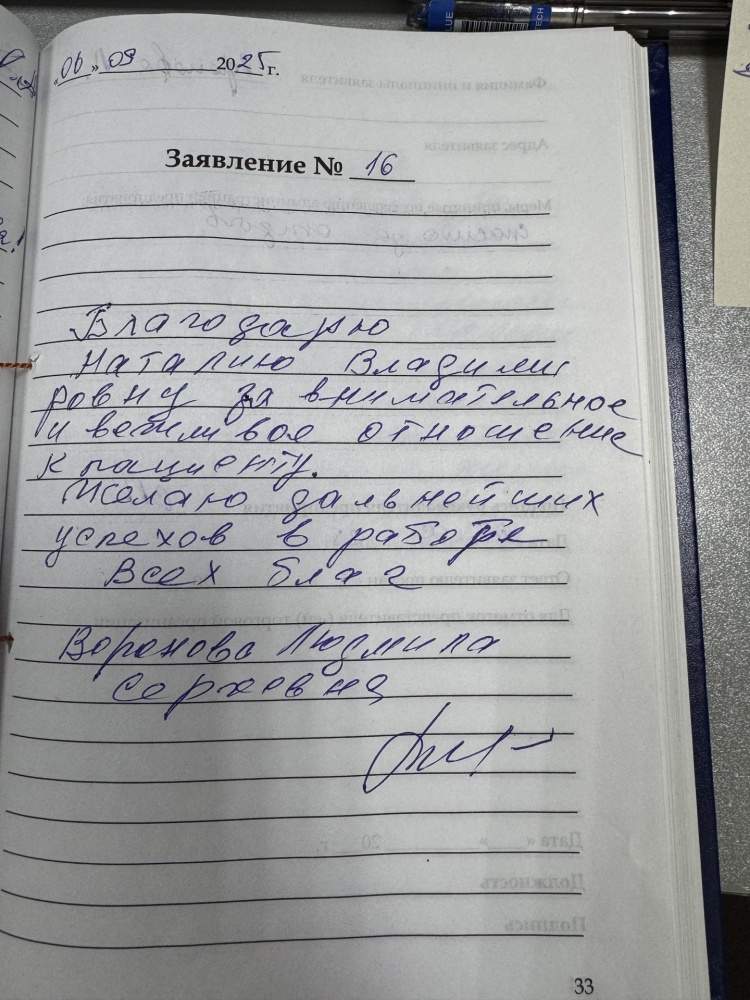 «06» 09 2025 г.
Заявление № 16
Благодарю
Наталию Владими
ровну за внимательное
и вежливое отношение
к пациенту.
Желаю дальнейших
успехов в работе
Всех благ
Воронова Людмила
Сергеевна
33